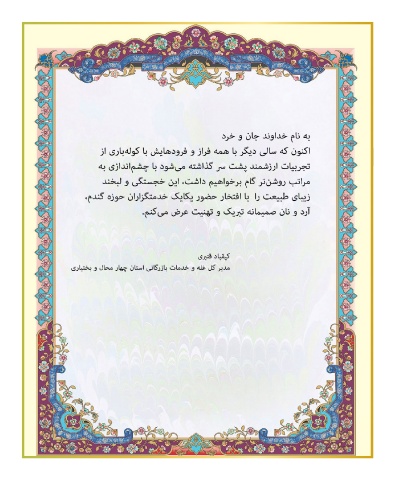 به نام خداوند جان و خرد
اکنون که سالی دیگر با همه فراز و فرودهایش با کوله‌باری از
تجربیات ارزشمند پشت سر گذاشته می‌شود با چشم‌اندازی به
مراتب روشن‌تر گام برخواهیم داشت، این خجستگی و لبخند
زیبای طبیعت را با افتخار حضور یکایک خدمتگزاران حوزه گندم،
آرد و نان صمیمانه تبریک و تهنیت عرض می‌کنم.
کیقباد قنبری
مدیر کل غله و خدمات بازرگانی استان چهار محال و بختیاری